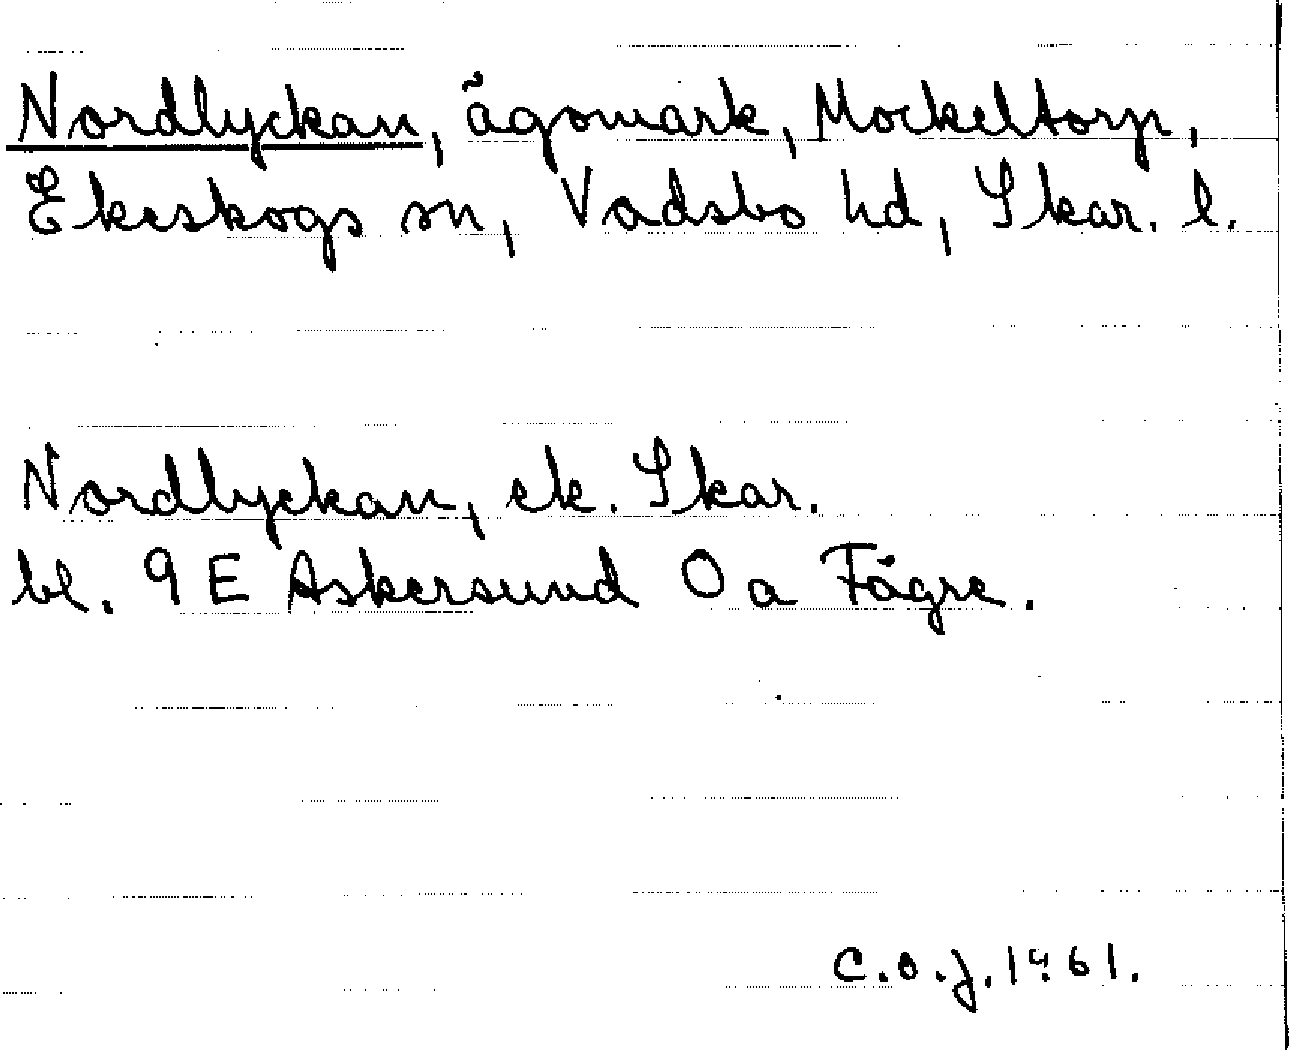 Nordlyckan, ägomark, Mockeltorp,
Ekeskogs sn, Vadsbo hd, Skar. l.
Nordlyckan, ek. Skar.
bl. 9 E Askersund 0 a Fägre.
C.O.J. 1961.